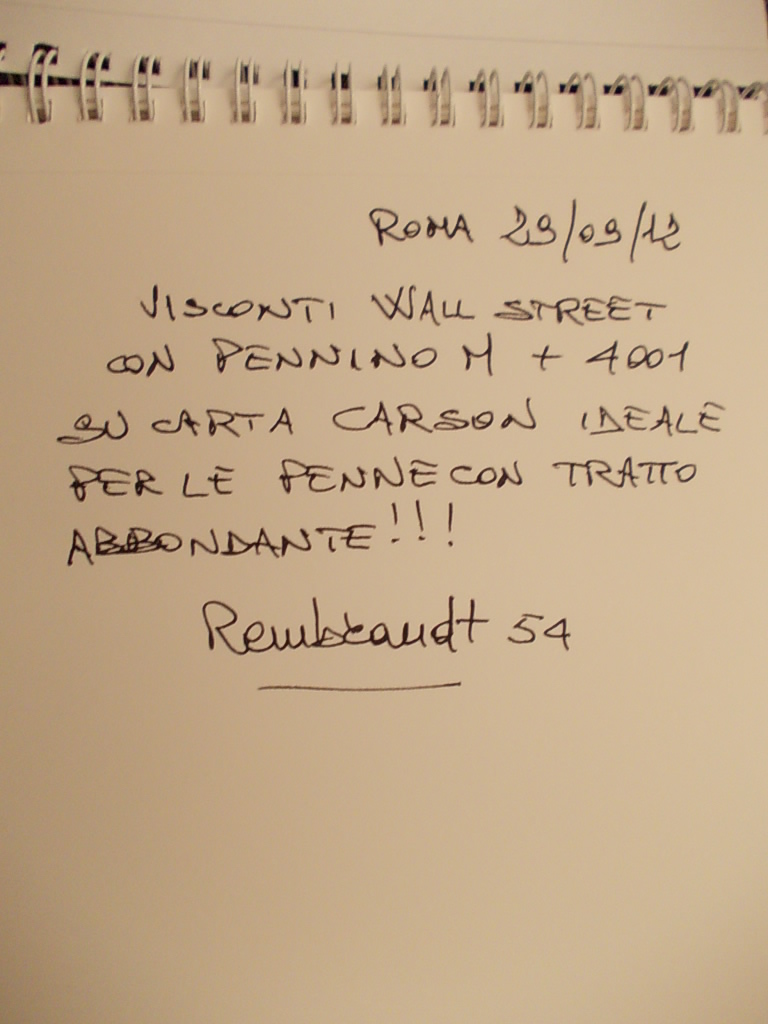 ROMA 29/09/12
VISCONTI WALL STREET
CON PENNINO M + 4001
SU CARTA CARSON IDEALE
PER LE PENNE CON TRATTO
ABBONDANTE!!!
Rembrandt 54